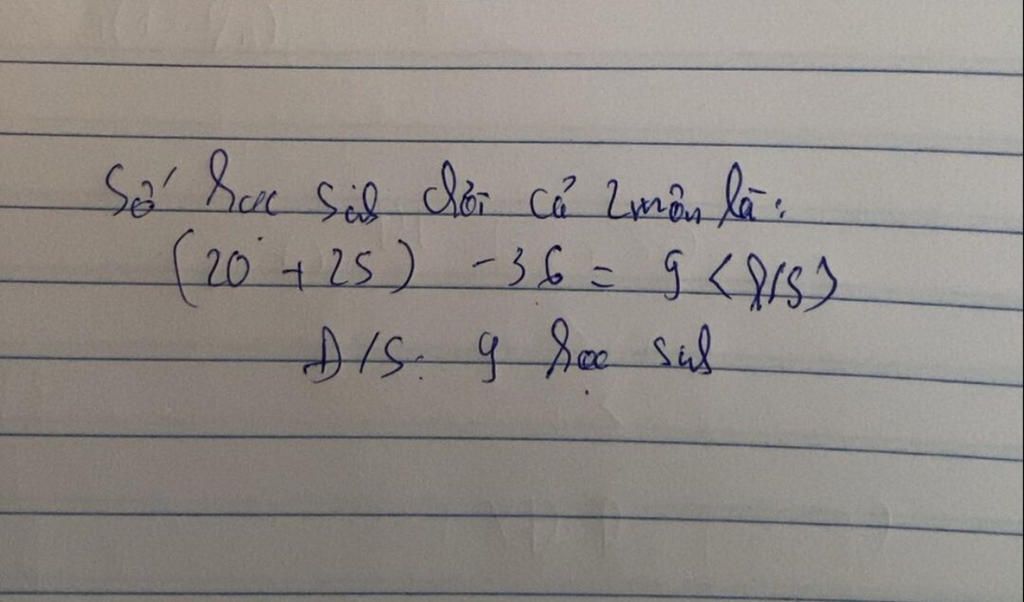 Số học sinh chơi cả 2 môn là:
(20 + 25) - 36 = 9 <h/s>
Đ/S: 9 học sinh